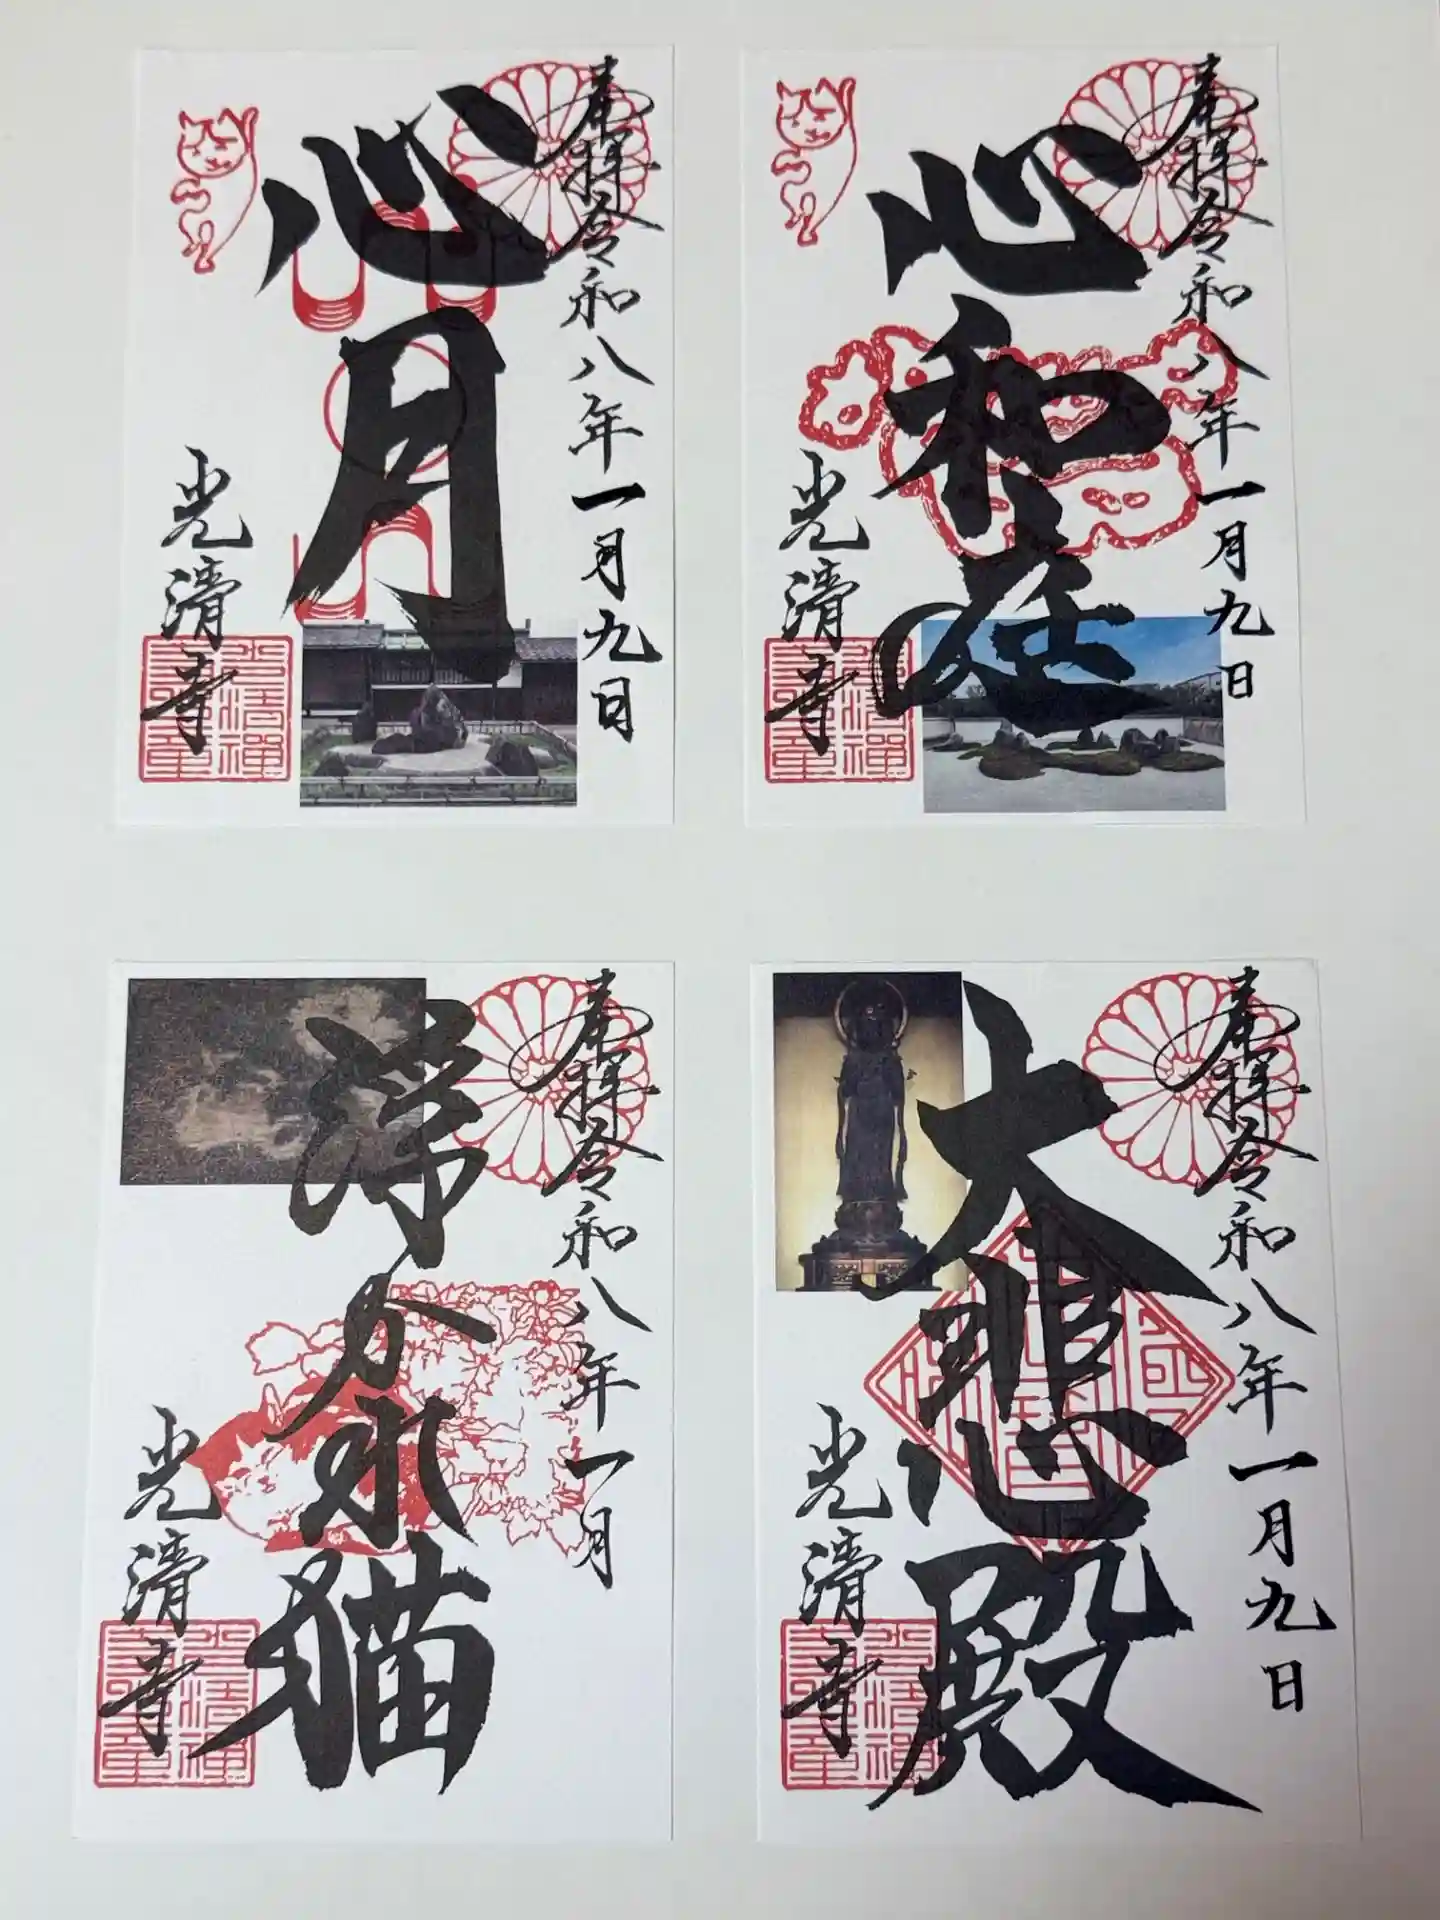 奉拝令和八年一月九日
心月
光清寺
奉拝令和八年一月九日
心和庭
光清寺
奉拝令和八年一月
浮かれ猫
光清寺
奉拝令和八年一月九日
大悲殿
光清寺